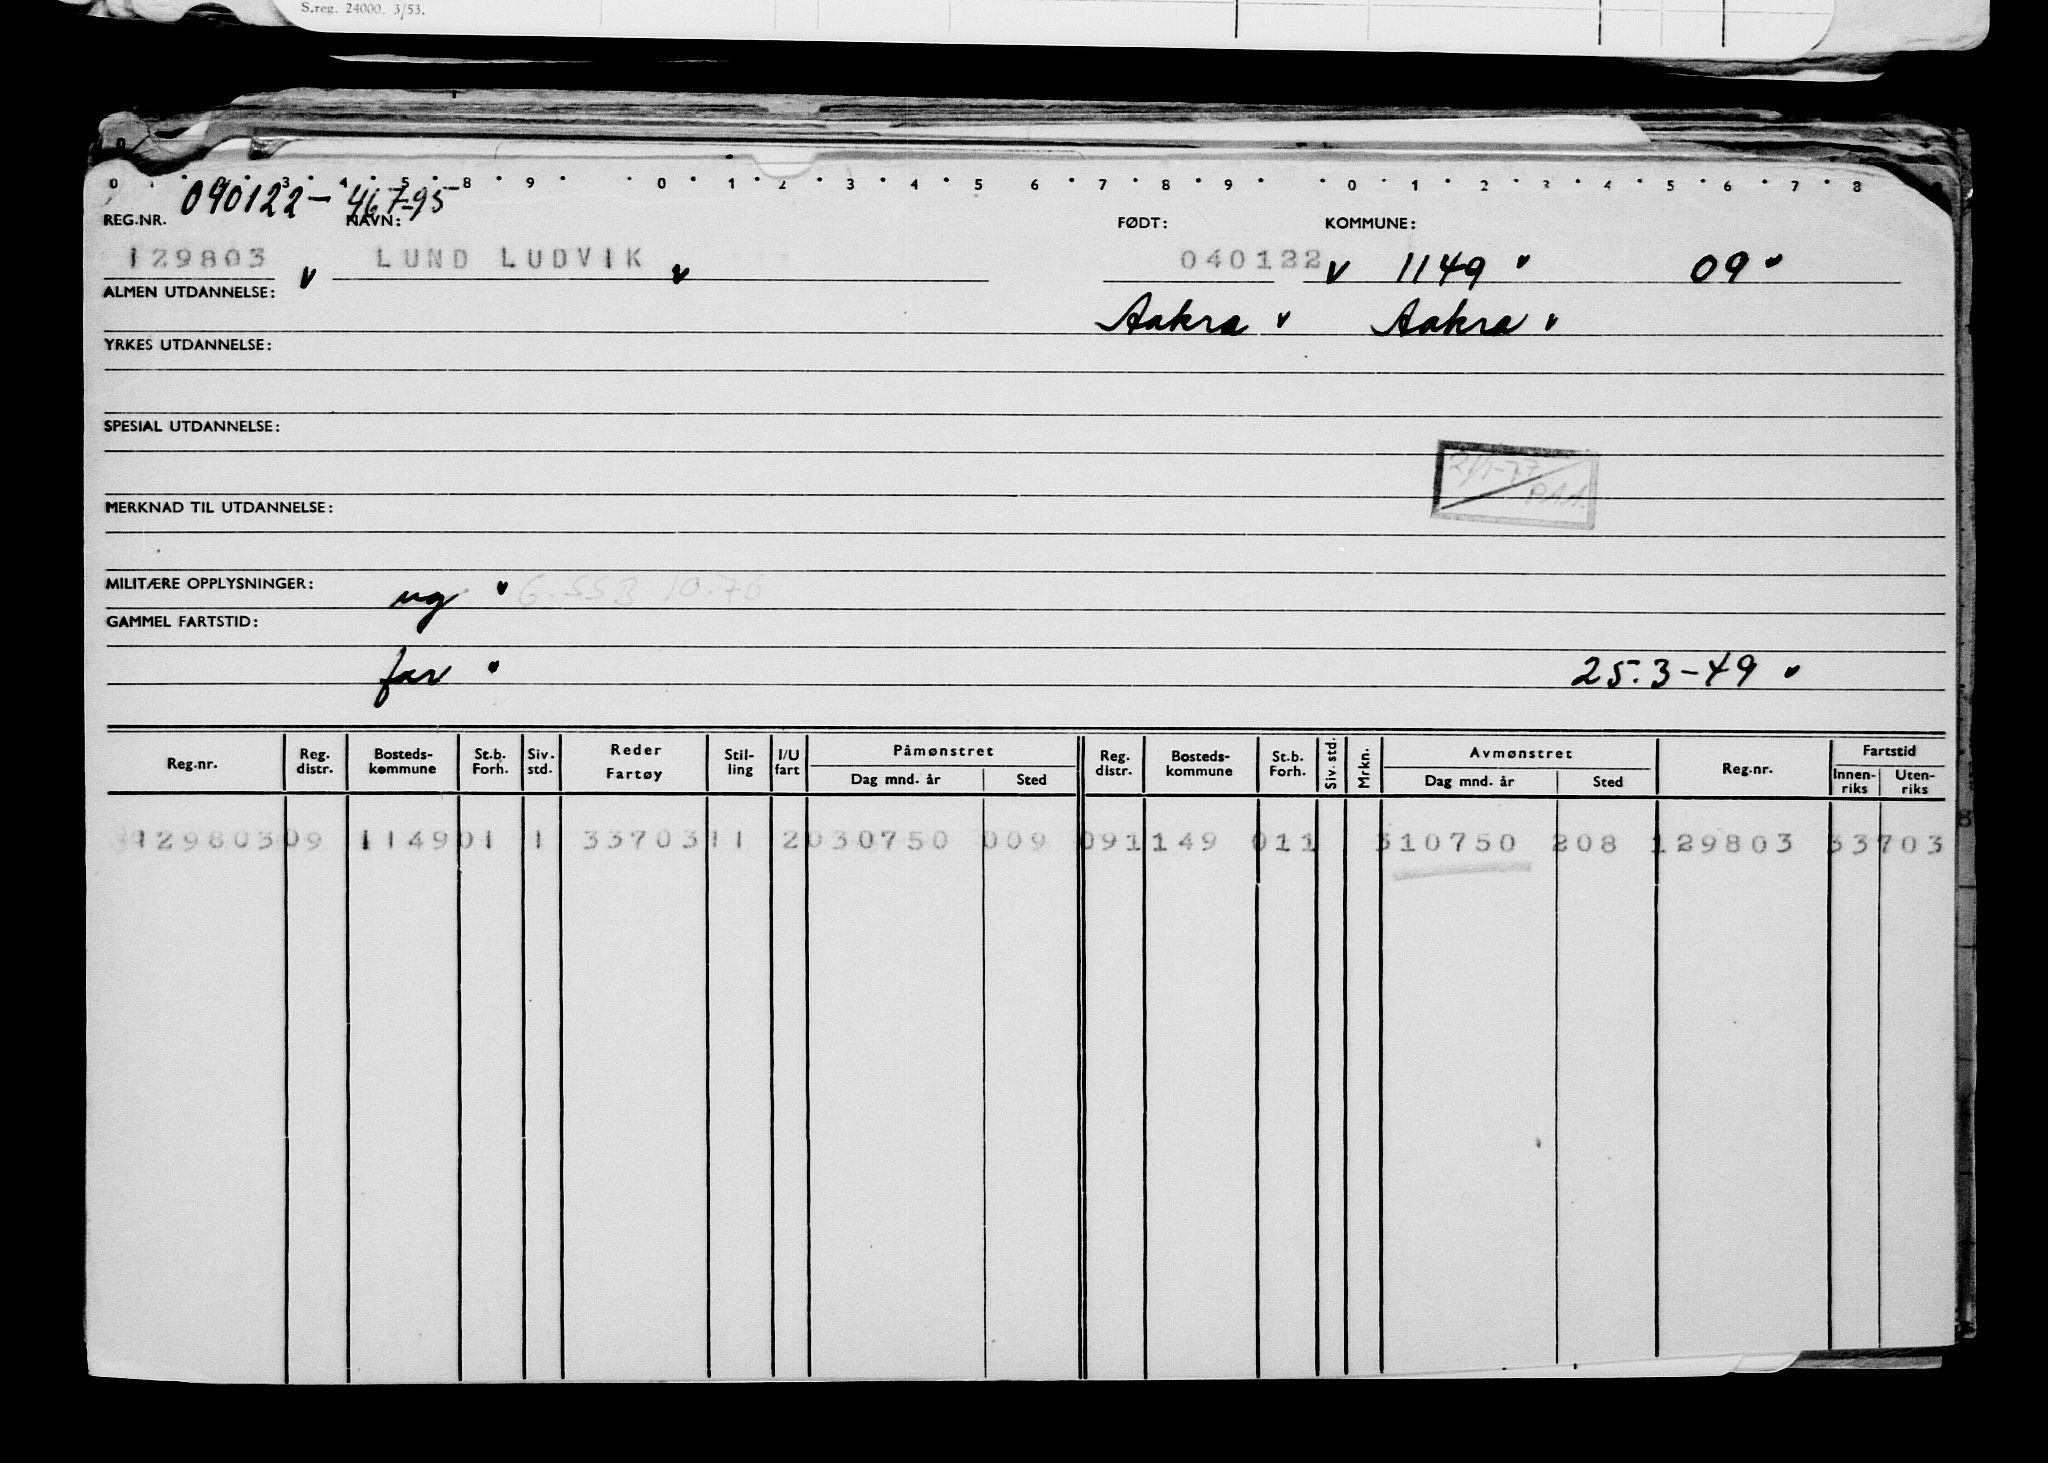 S.reg. 24000. 3/53.
0 1 3 4 5 8 9 0 1 2 3 4 5 6 7 8 9 0 1 2 3 4 5 6 7 8
090122-46795
REG.NR. NAVN: FØDT: KOMMUNE:
129803 v LUND LUDVIK v 040122 v 1149 09
ALMEN UTDANNELSE:
Aakra Aakra
YRKES UTDANNELSE:
SPESIAL UTDANNELSE:
21/1-77
P.A.A.
MERKNAD TIL UTDANNELSE:
MILITÆRE OPPLYSNINGER: ug G.SSB 10.76
GAMMEL FARTSTID:
far 25.3-49
Reg.nr. Reg. distr. Bosteds-kommune St.b. Forh. Siv. std. Reder Fartøy Stil-ling I/U fart Påmønstret Dag mnd. år Sted Reg. distr. Bosteds-kommune St.b. Forh. Siv. std. Mrkn. Avmønstret Dag mnd. år Sted Reg.nr. Fartstid Innen-riks Uten-riks
129803 09 1149 01 1 33703 11 2 030750 009 09 1149 011 310750 208 129803 33703